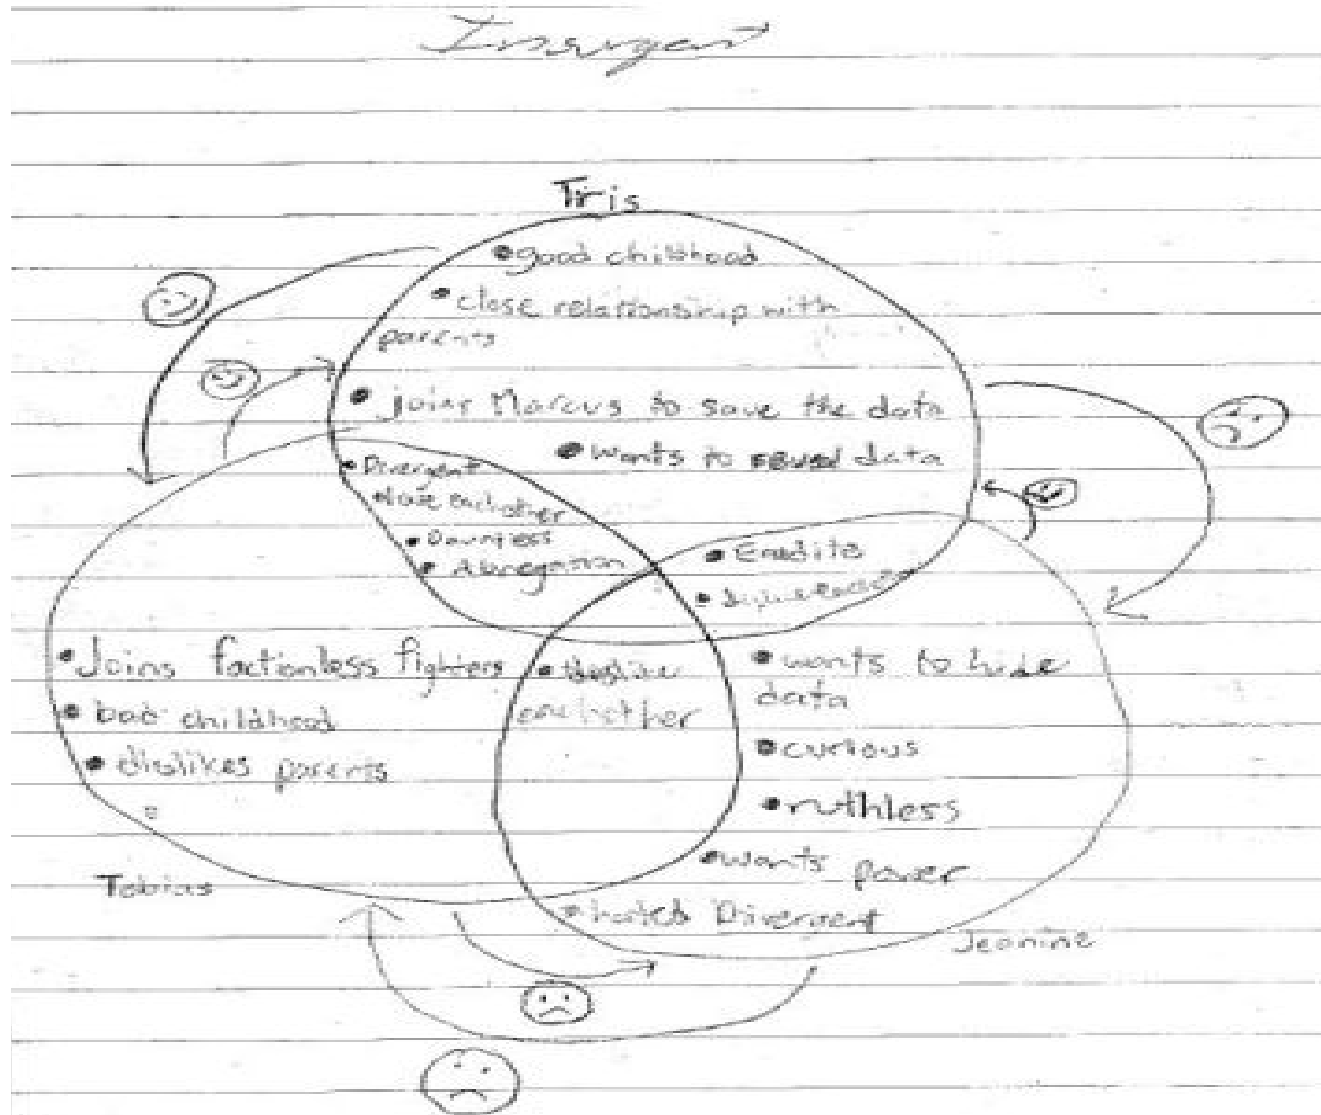 Insurgent
Tris
• good childhood
• close relationship with
parents
• joins Marcus to save the data
• wants to data
• Divergent
• love each other
• Dauntless
• Abnegation
• Erudite
• Joins factionless fighters
• bad childhood
• dislikes parents
• dislike
• wants to hide
data
• curious
• ruthless
• wants power
• hated Divergent
Tobias
Jeanine